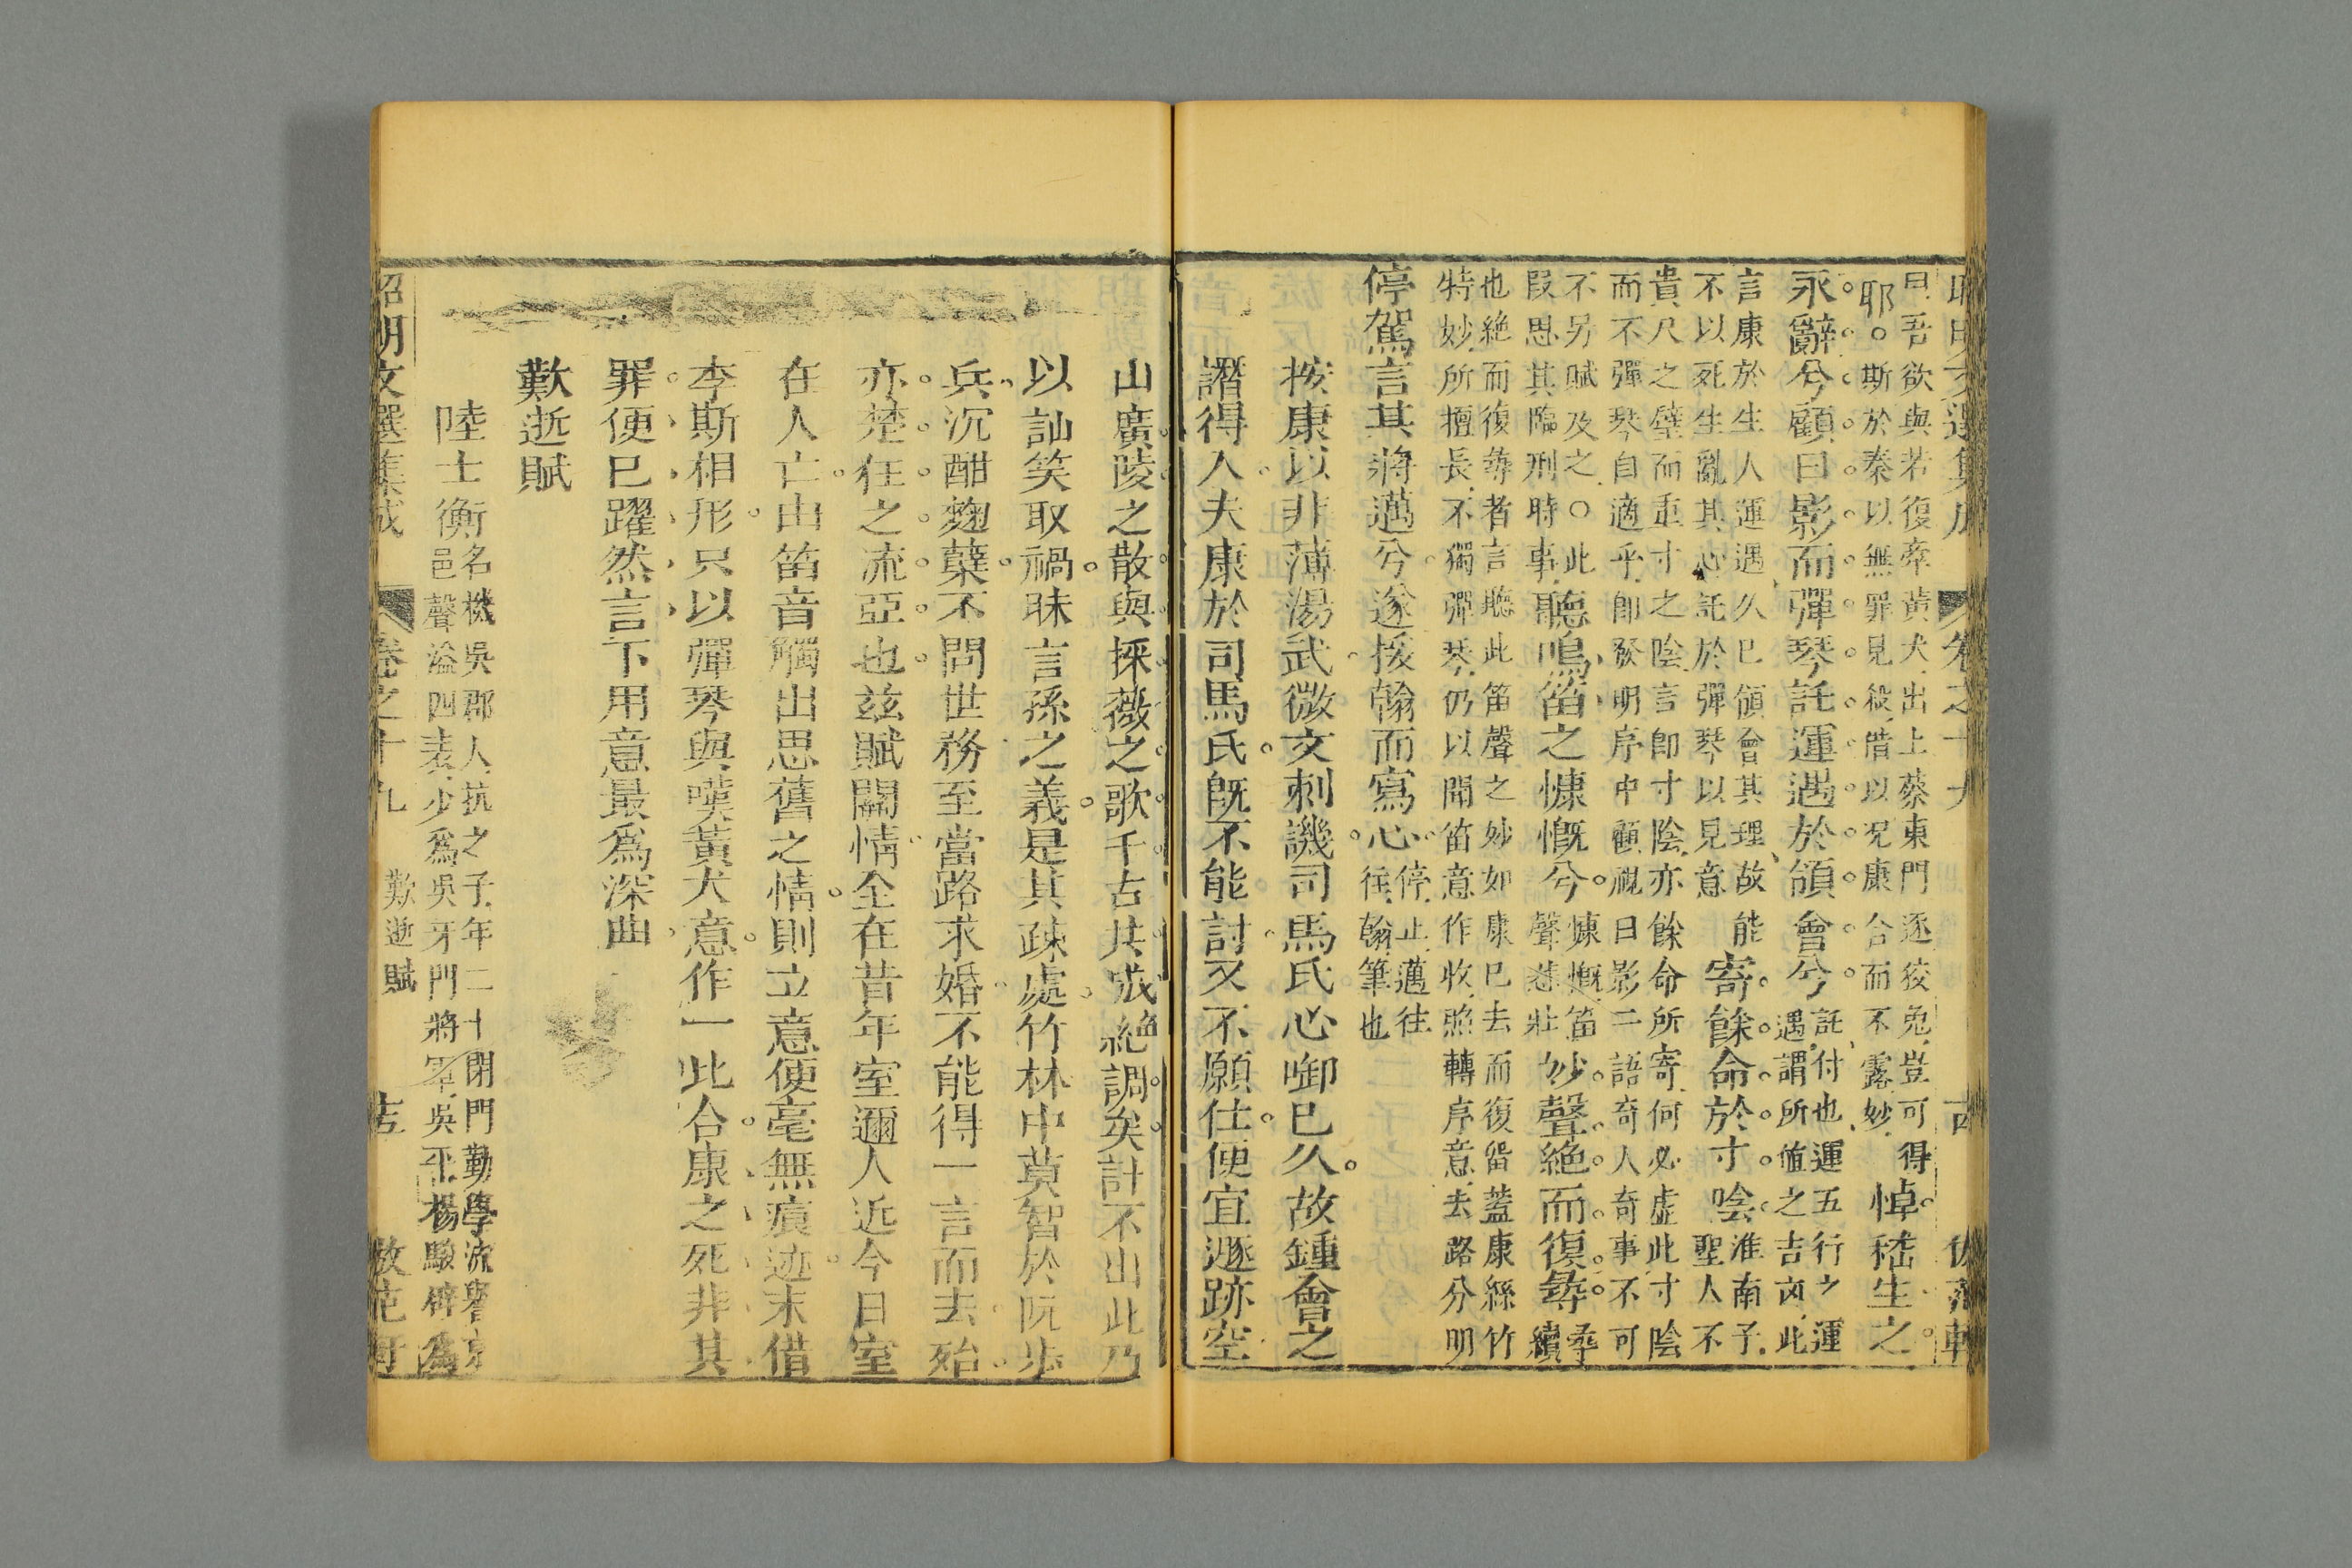 曰吾欲與若復牽黃犬出上蔡東門逐狡兔豈可得
耶。斯於秦以無罪見殺借以况康合而不露妙
悼嵇生之
永辭兮顧日影而彈琴託運遇於領會兮
託付也運五行之運
遇謂所值之吉凶此
言康於生人運遇久已領會其理故能
不以死生亂其心託於彈琴以見意
寄餘命於寸陰
淮南子
聖人不
貴尺之璧而重寸之陰言卽寸陰亦餘命所寄何必虛此寸陰
而不彈琴自適乎卽發明序中顧視日影二語奇人奇事不可
不另賦及之○此
段思其臨刑時事
聽鳴笛之慷慨兮
慷慨笛
聲悲壯
妙聲絕而復尋
尋
續
也絕而復尋者言聽此笛聲之妙如康已去而復留蓋康絲竹
特妙所擅長不獨彈琴仍以聞笛意作收照轉序意去路分明
停駕言其將邁兮遂援翰而寫心
停止邁往
往翰筆也
按康以非薄湯武微文刺譏司馬氏心啣已久故鍾會之
譖得入夫康於司馬氏旣不能討又不願仕便宜遯跡空
山廣陵之散與採薇之歌千古共成絕調矣計不出此乃
以訕笑取禍昧言孫之義是其疎處竹林中莫智於阮步
兵沉酣麴蘗不問世務至當路求婚不能得一言而去殆
亦楚狂之流亞也玆賦關情全在昔年室邇人近今日室
在人亡由笛音觸出思舊之情則立意便毫無痕迹末借
李斯相形只以彈琴與嘆黃犬意作一比合康之死非其
罪便已躍然言下用意最爲深曲
歎逝賦
陸士衡
名機吳郡人抗之子年二十閉門勤學流譽京
邑聲溢四表少爲吳牙門將軍吳平楊駿辟爲
昭明文選集成 卷之十九 歎逝賦